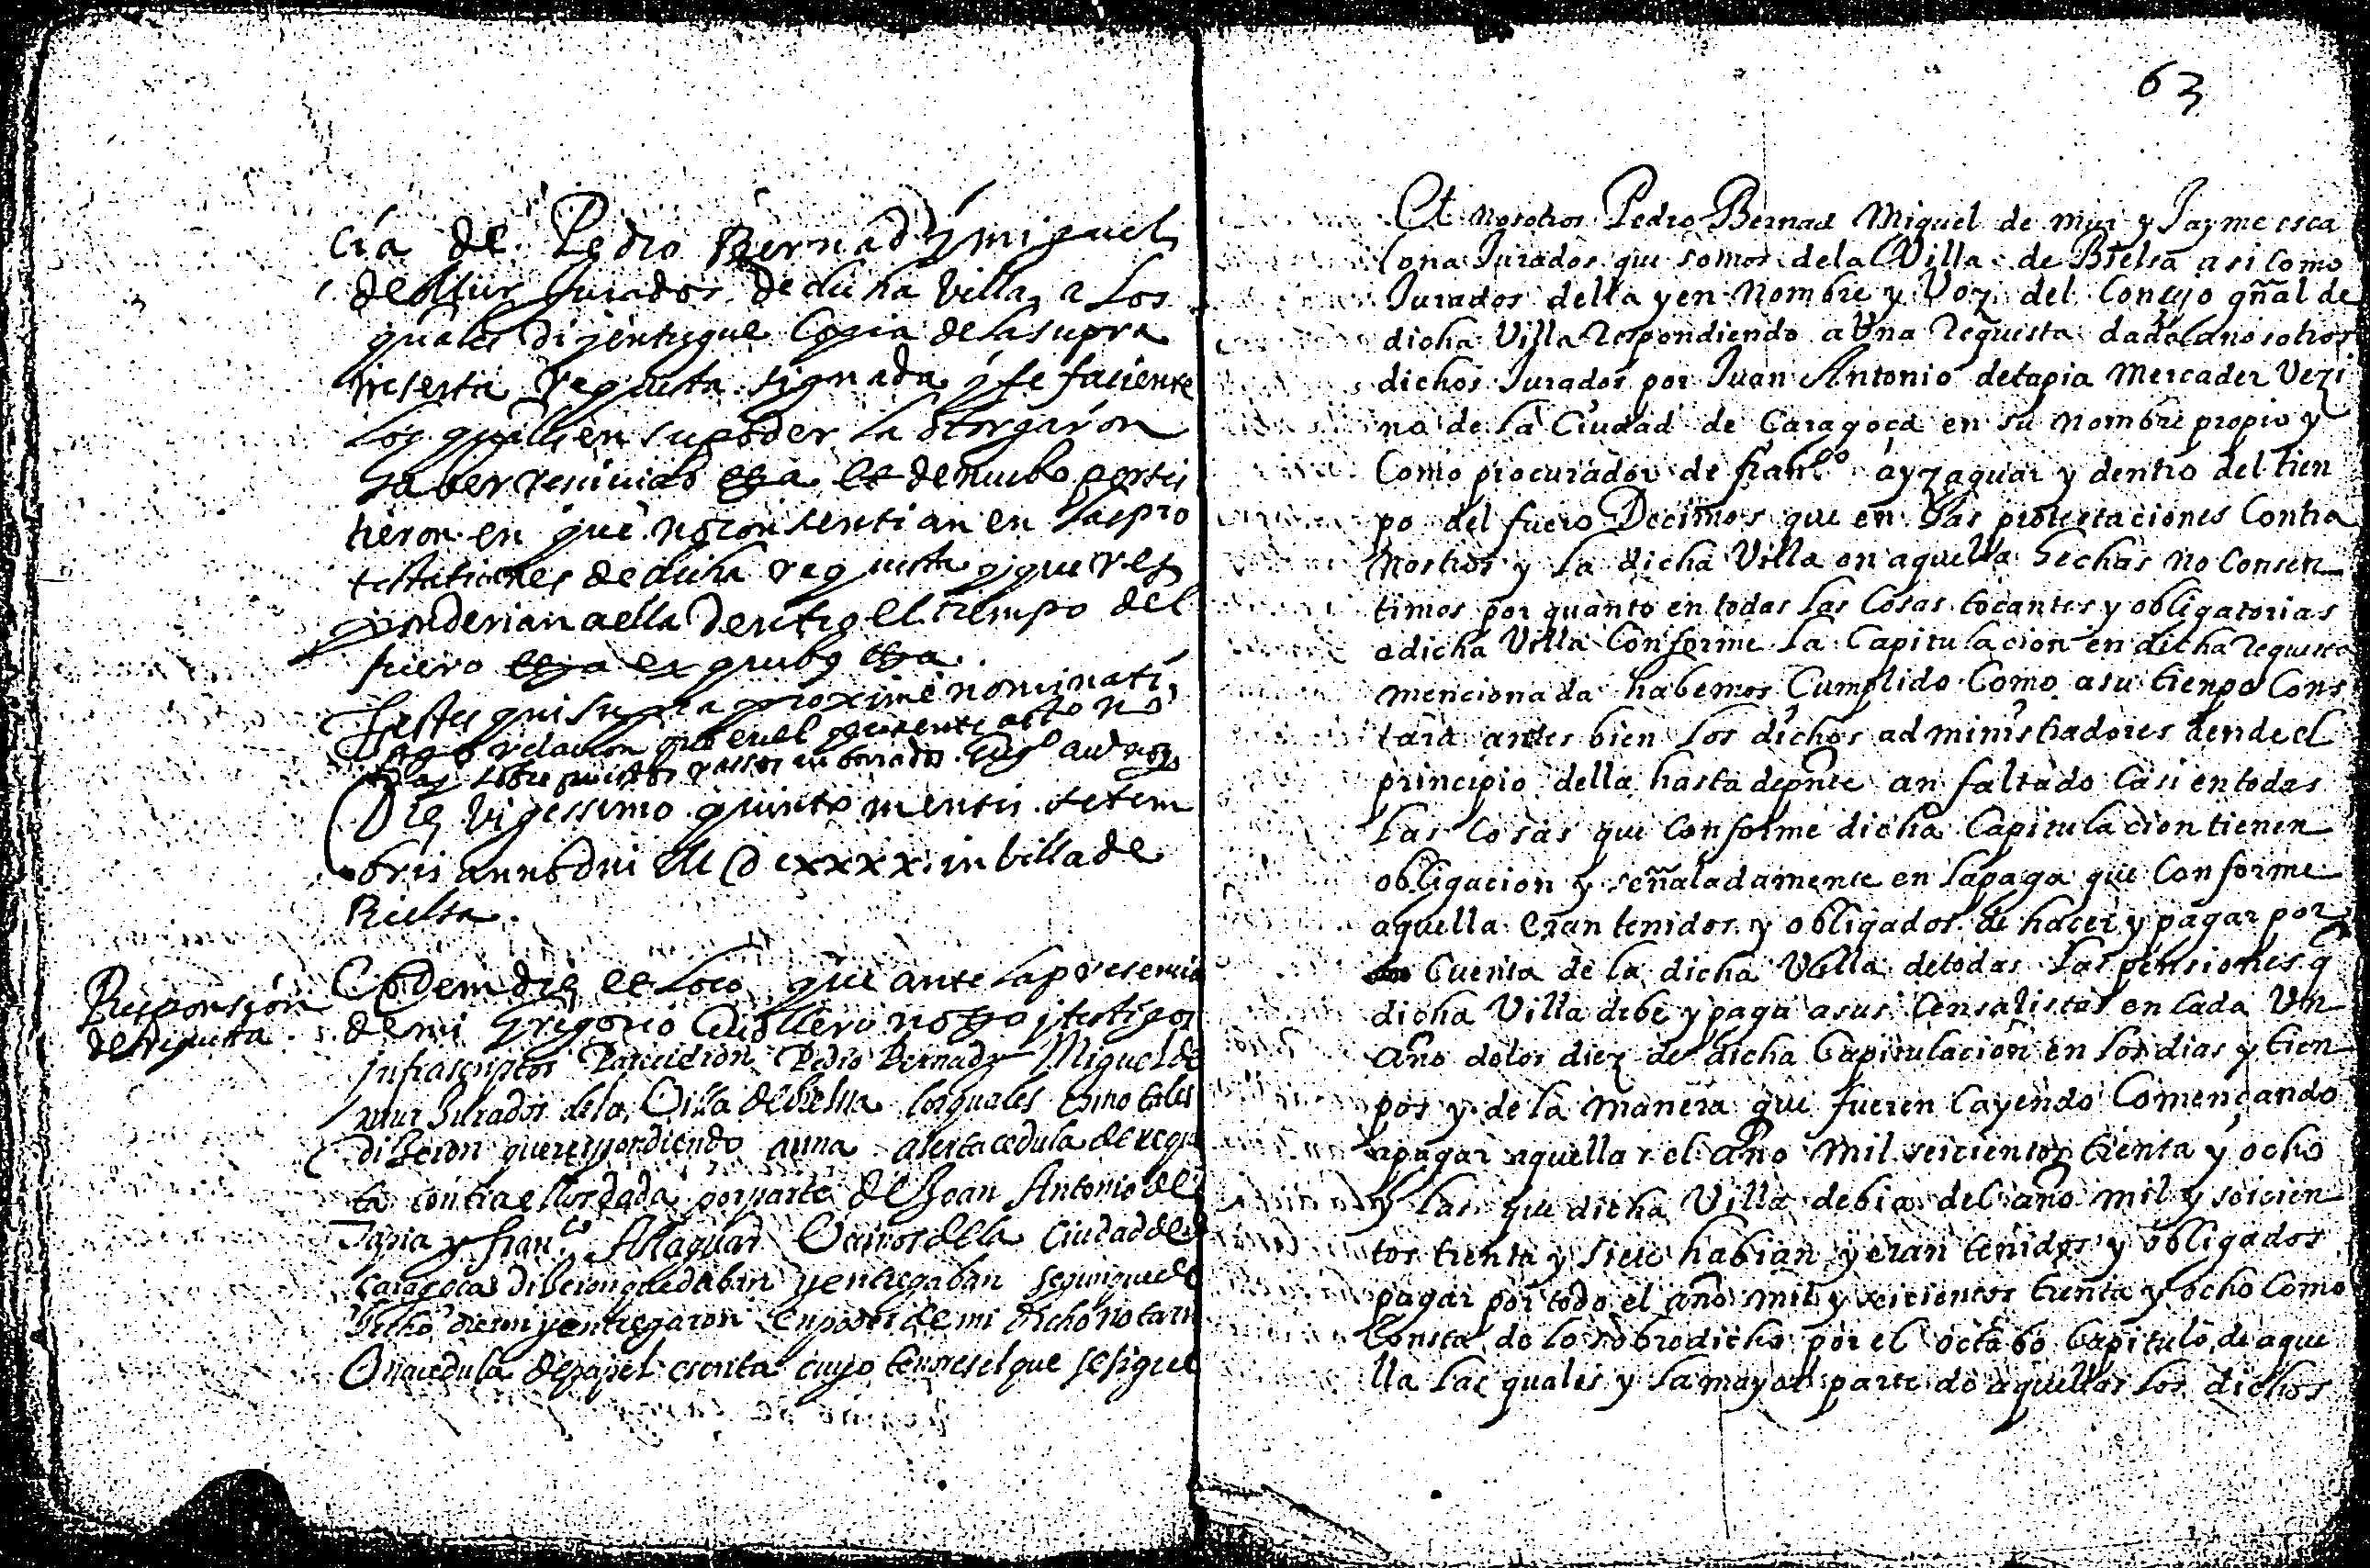 cia de Pedro Bernad y miguel
de Mur Jurados de dicha villa, a los
quales di y entregue Copia de la supra
inserta requesta signada y fe faciente
los quales en su poder la otorgaron
haber recivido et de nuebo persis
tieron en que no consentian en las pro
testationes de dicha requesta y que res
ponderian a ella dentro el tiempo del
fuero ex quibus
Testes qui supra proxime nominati,
Hago relacion que en el presente acto no
Die vigessimo quinto mensis setem
bris anno dni M DCXXXX in villa de
Bielsa.
Responsion
de requesta.
Eodem die et loco, que ante la presencia
de mi Gregorio notto y testigos
infrascriptos Parecieron Pedro Bernad y Miguel de
mur Jurados de la Villa de Bielsa los quales como tales
dixeron que respondiendo a una cedula de reques
ta contra ellos dada por parte de Joan Antonio de
Tapia y Fran.co Vecinos de la Ciudad de
Caragoça dixeron que daban y entregaban segun que de
hecho dieron y entregaron en poder de mi dicho notario
Una cedula de papel escrita cuyo tenor es el que se sigue
63
Et nosotros Pedro Bernad Miguel de Mur y Jayme esca
lona Jurados que somos de la Villa de Bielsa asi como
Jurados della y en nombre y Voz del Concejo gñal de
dicha Villa respondiendo a Una requesta dada a nosotros
dichos Jurados por Juan Antonio de tapia Mercader Vezi
no de la Ciudad de Caragoça en su nombre propio y
Como procurador de fran.co ayzaguar y dentro del tien
po del fuero Decimos que en las protestaciones Contra
nostros y la dicha Villa en aquella hechas no Consen
timos por quanto en todas las Cosas tocantes y obligatorias
a dicha Villa Conforme la Capitulacion en dicha requesta
mencionada habemos Cumplido Como a su tienpo Cons
tara antes bien los dichos administradores dende el
principio della hasta de pnte an faltado Casi en todas
las Cosas que Conforme dicha Capitulacion tienen
obligacion y señaladamente en la paga que Conforme
aquella eran tenidos y obligados de hacer y pagar por
Cuenta de la dicha Villa de todas las pensiones q
dicha Villa debe y paga a sus Censalistas en Cada Un
Año de los diez de dicha Capitulacion en los dias y tien
pos y de la manera que fueren Cayendo Començando
a pagar aquellas el Año Mil seicientos trenta y ocho
y las que dicha Villa debia del año mil y seicien
tos trenta y siete habian y eran tenidos y obligados
pagar por todo el año mil y seicientos trenta y ocho Como
Consta de lo sobredicho por el octabo Capitulo de aque
lla las quales y la mayor parte de aquellas los dichos